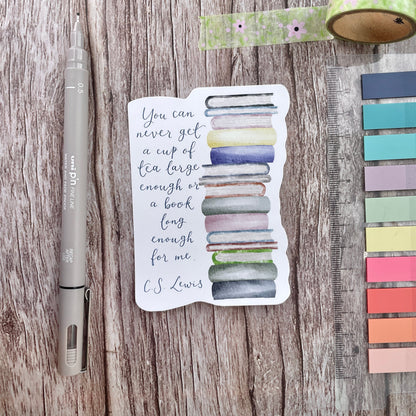 You can
never get
a cup of
tea large
enough or
a book
long
enough
for me.
C.S. Lewis
0.5
uni pin
FINE LINE